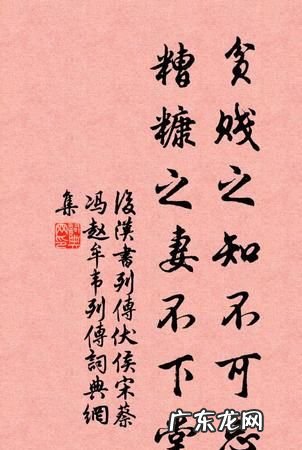 贫贱之知不可忘
糟糠之妻不下堂
後汉書列傳伏侯宋蔡
冯赵牟韦列傳詞典網
集
广东龙网